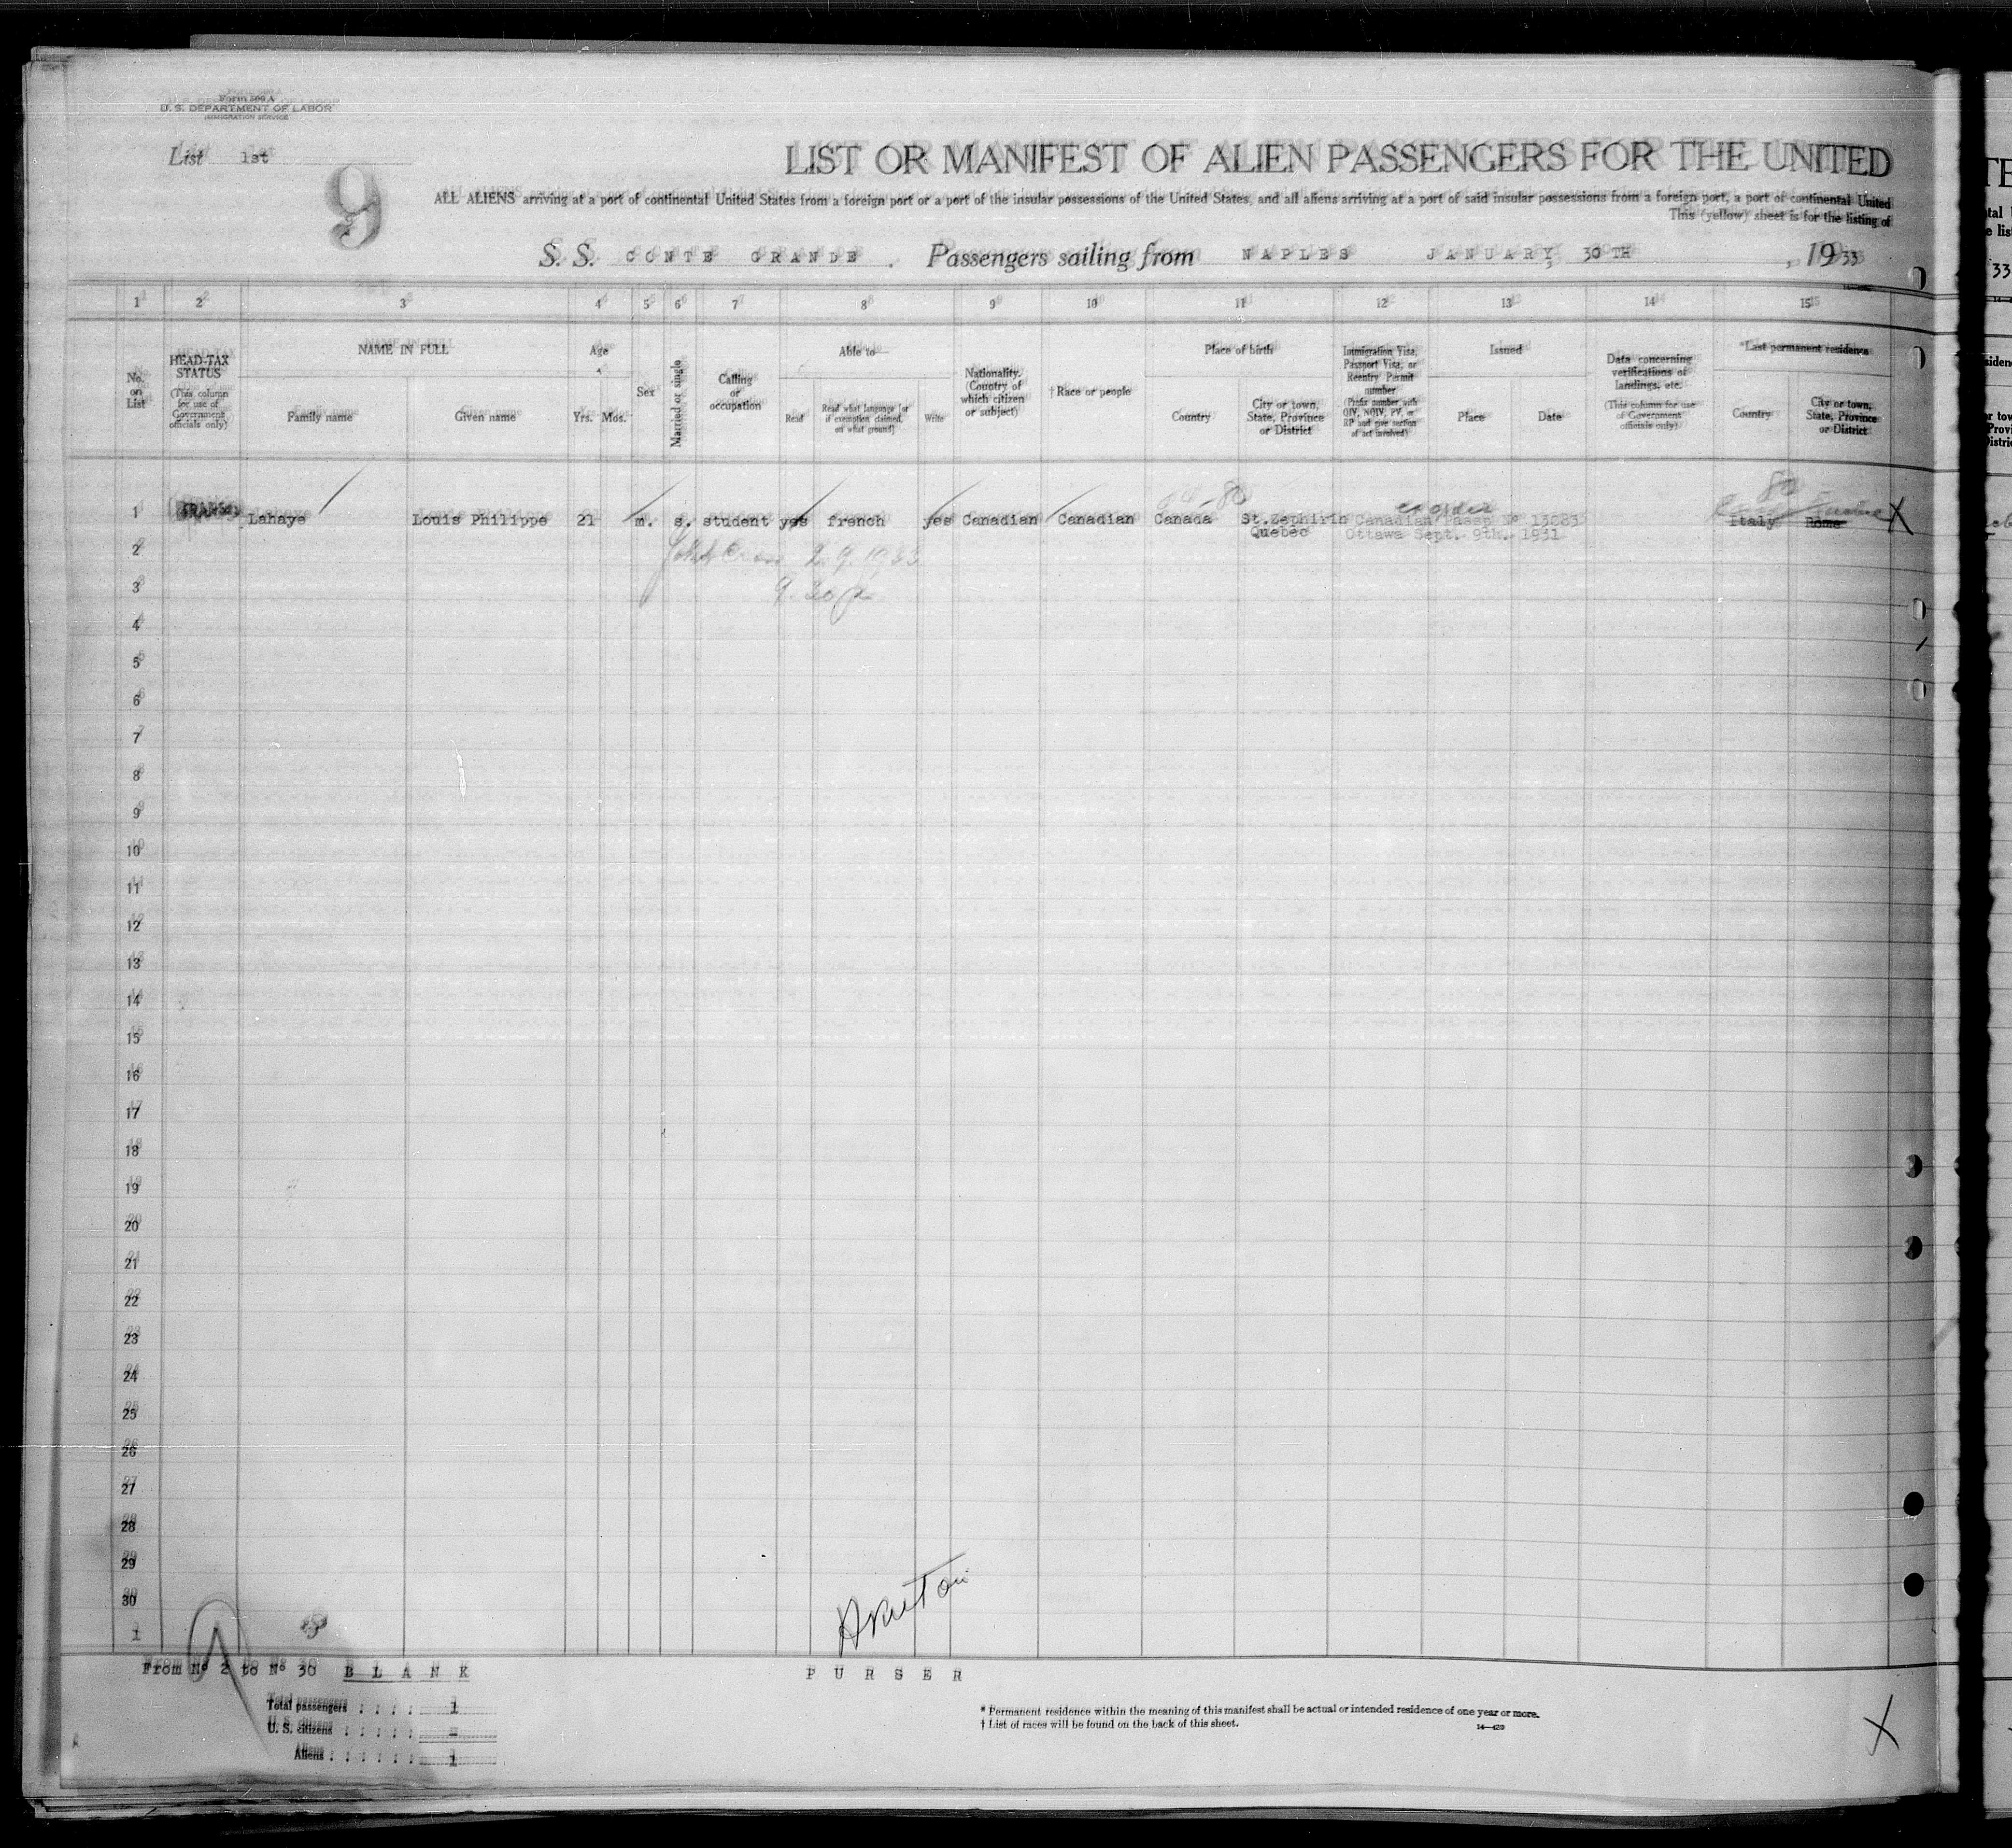 Form 500 A
U. S. DEPARTMENT OF LABOR
IMMIGRATION SERVICE
List 1st
9
LIST OR MANIFEST OF ALIEN PASSENGERS FOR THE UNITED
ALL ALIENS arriving at a port of continental United States from a foreign port or a port of the insular possessions of the United States, and all aliens arriving at a port of said insular possessions from a foreign port, a port of continental United
This (yellow) sheet is for the listing of
S. S. CONTE GRANDE. Passengers sailing from NAPLES JANUARY, 30TH, 1933
1 2 3 4 5 6 7 8 9 10 11 12 13 14 15
No. on List
HEAD-TAX STATUS
(This column for use of Government officials only)
NAME IN FULL
Family name
Given name
Age
Yrs. Mos.
Sex
Married or single
Calling or occupation
Able to—
Read
Read what language [or if exemption claimed, on what ground]
Write
Nationality. (Country of which citizen or subject)
† Race or people
Place of birth
Country
City or town, State, Province or District
Immigration Visa, Passport Visa, or Reentry Permit number
(Prefix number with QIV, NQIV, PV, or RP and give section of act involved)
Issued
Place
Date
Data concerning verifications of landings, etc.
(This column for use of Government officials only)
*Last permanent residence
Country
City or town, State, Province or District
80
1 TRANS. Lahaye Louis Philippe 21 m. s. student yes french yes Canadian Canadian Canada St. Zephirin Canadian Passp Nº 13083 Italy Rome X
Quebec Ottawa Sept. 9th. 1931
2 2. 9. 1933
3 9. 30 p
4
5
6
7
8
9
10
11
12
13
14
15
16
17
18
19
20
21
22
23
24
25
26
27
28
29
30
1
From Nº 2 to Nº 30 BLANK
PURSER
Total passengers : : : : 1
U. S. citizens : : : : : -
Aliens : : : : : : 1
* Permanent residence within the meaning of this manifest shall be actual or intended residence of one year or more.
† List of races will be found on the back of this sheet.
14—429
X